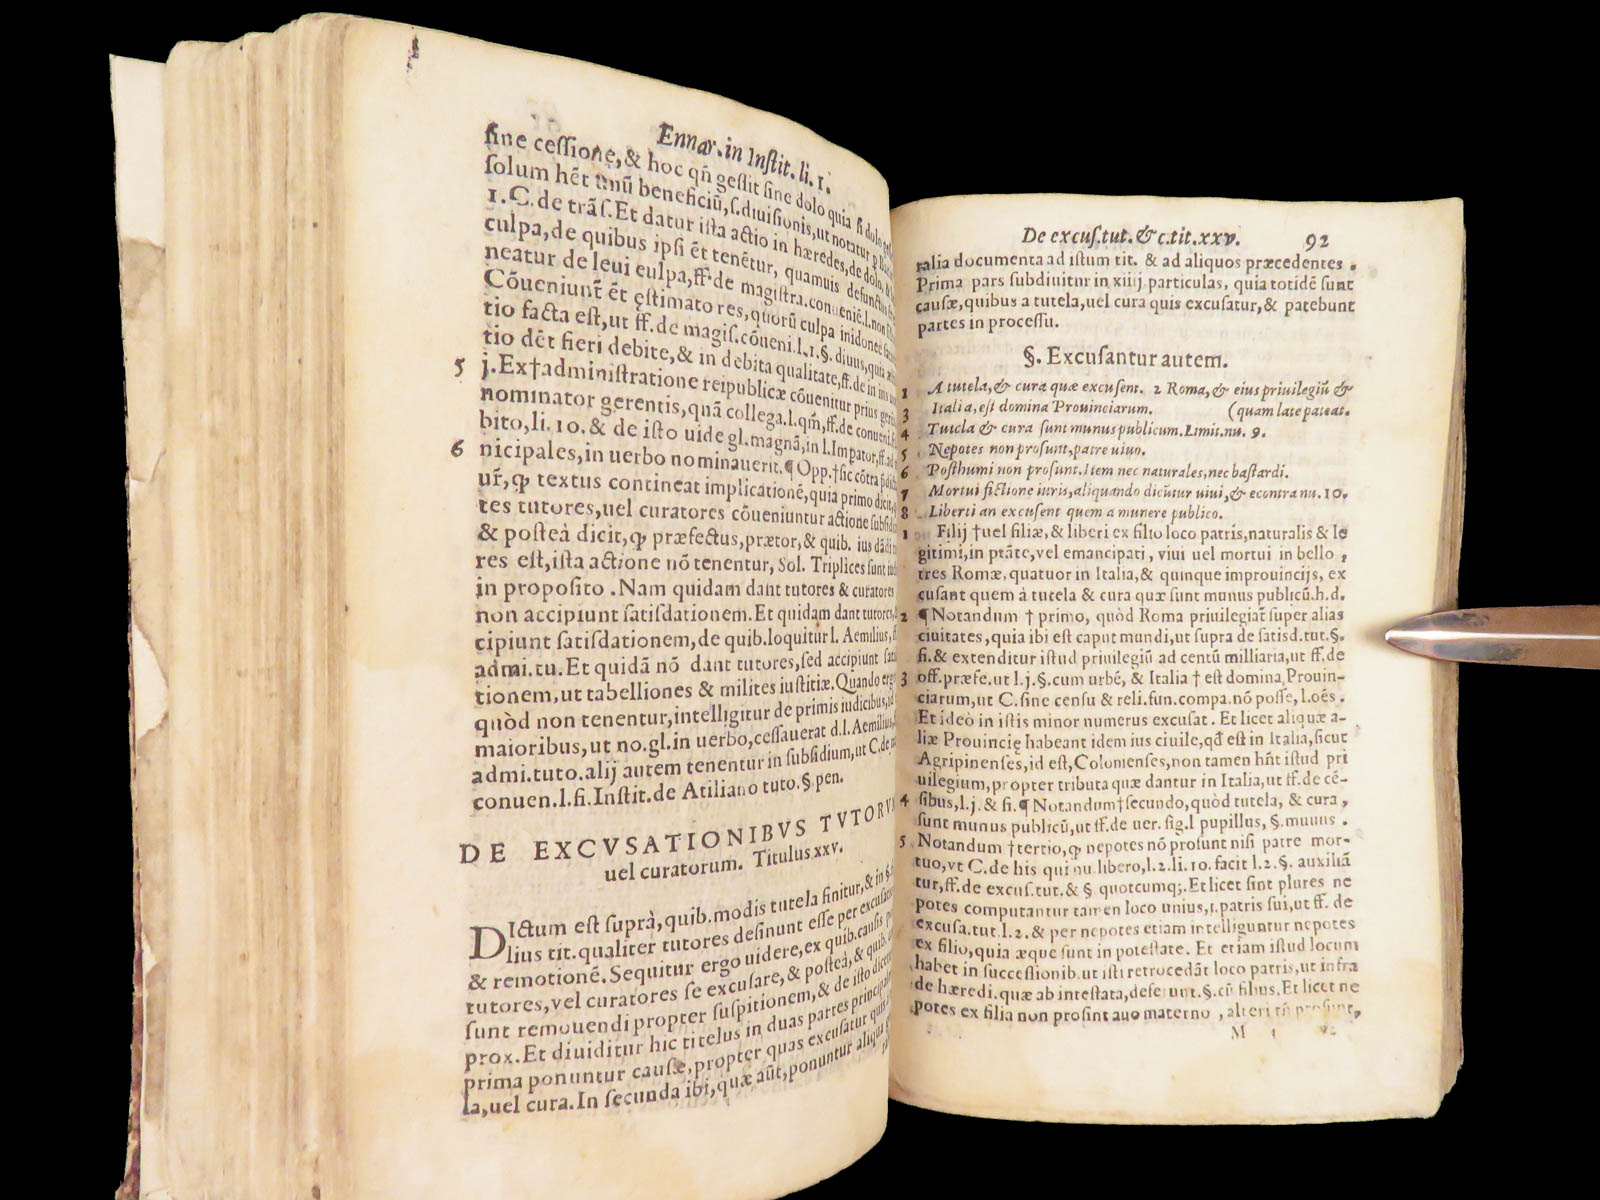 Ennar.in Inſtit. li. 1.
ſine ceſſione, & hoc qñ geſſit ſine dolo quia ſi dolo
ſolum hẽt unũ beneficiũ, ſ. diuiſionis, ut notatur
1.C. de trãſ. Et datur iſta actio in hæredes, de dolo,
culpa, de quibus ipſi ẽt tenẽtur, quamuis defunctus
neatur de leui eulpa, ff. de magiſtra. conueniẽ. l. non
Cõueniunt̃ ẽt ęſtimatores, quorũ culpa inidonee
tio facta eſt, ut ff. de magiſ. cõueni. l. 1. §. diuus, quia
tio dẽt fieri debite, & in debita qualitate, ff. de in ius
5 j. Ex † adminiſtratione reipublicæ cõuenitur prius
nominator gerentis, quã collega. l. qm̃, ff. de conueni.
bito, li. 10. & de iſto uide gl. magnã, in l. Imperator, ff. ad
6 nicipales, in uerbo nominauerit. ¶ Opp. † ſic cõtra
ur̃, ꝙ textus contineat implicationẽ, quia primo dicit,
tes tutores, uel curatores cõueniuntur actione ſubſid
& poſteà dicit, ꝙ præfectus, prætor, & quib. ius dãdi
res eſt, iſta actione nõ tenentur, Sol. Triplices ſunt
in propoſito. Nam quidam dant tutores & curatores
non accipiunt ſatiſdationem. Et quidam dant tutores,
cipiunt ſatiſdationem, de quib. loquitur l. Aemilius,
admi. tu. Et quidã nõ dant tutores, ſed accipiunt ſati
tionem, ut tabelliones & milites iuſtitiæ. Quando ergo
quòd non tenentur, intelligitur de primis iudicibus,
maioribus, ut no. gl. in uerbo, ceſſauerat d. l. Aemilius,
admi. tuto. alij autem tenentur in ſubſidium, ut C. de
conuen. l. fi. Inſtit. de Atiliano tuto. §. pen.
DE EXCVSATIONIBVS TVTORV
uel curatorum. Titulus xxv.
DIctum eſt ſuprà, quib. modis tutela finitur, & in §.
lius tit. qualiter tutores deſinunt eſſe per excuſatio
& remotionẽ. Sequitur ergo uidere, ex quib. cauſis
tutores, vel curatores ſe excuſare, & poſteà, & quib.
ſunt remouendi propter ſuſpitionem, & de iſto dicetur
prox. Et diuiditur hic titelus in duas partes principales
prima ponuntur cauſæ, propter quas excuſatur quis
la, uel cura. In ſecunda ibi, quæ aũt, ponuntur aliqua
De excuſ. tut. & c. tit. xxv. 92
ralia documenta ad iſtum tit. & ad aliquos præcedentes.
Prima pars ſubdiuitur in xiiij particulas, quia totidẽ ſunt
cauſæ, quibus a tutela, uel cura quis excuſatur, & patebunt
partes in proceſſu.
§. Excuſantur autem.
1 A tutela, & cura quæ excuſent. 2 Roma, & eius priuilegiũ &
3 Italia, eſt domina Prouinciarum. (quam late pateat.
4 Tutela & cura ſunt munus publicum. Limit. nu. 9.
5 Nepotes non proſunt, patre uiuo.
6 Poſthumi non proſunt. Item nec naturales, nec baſtardi.
7 Mortui fictione iuris, aliquando dicũtur uiui, & econtra nu. 10.
8 Liberti an excuſent quem a munere publico.
1 Filij † uel filiæ, & liberi ex filio loco patris, naturalis & le
gitimi, in ptãte, vel emancipati, viui uel mortui in bello,
tres Romæ, quatuor in Italia, & quinque improuincijs, ex
cuſant quem à tutela & cura quæ ſunt munus publicũ. h. d.
2 ¶ Notandum † primo, quòd Roma priuilegiat̃ ſuper alias
ciuitates, quia ibi eſt caput mundi, ut ſupra de ſatiſd. tut. §.
fi. & extenditur iſtud priuilegiũ ad centũ milliaria, ut ff. de
3 off. præfe. ut l. j. §. cum urbẽ, & Italia † eſt domina, Prouin-
ciarum, ut C. ſine cenſu & reli. fun. compa. nõ poſſe, l. oẽs.
Et ideò in iſtis minor numerus excuſat. Et licet aliquæ a-
liæ Prouincię habeant idem ius ciuile, qđ eſt in Italia, ſicut
Agripinenſes, id eſt, Colonienſes, non tamen hñt iſtud pri
uilegium, propter tributa quæ dantur in Italia, ut ff. de cẽ-
4 ſibus, l. j. & fi. ¶ Notandum † ſecundo, quòd tutela, & cura,
ſunt munus publicũ, ut ff. de uer. ſig. l pupillus, §. munus.
5 Notandum † tertio, ꝙ nepotes nõ proſunt niſi patre mor-
tuo, vt C. de his qui nu. libero, l. 2. li. 10. facit l. 2. §. auxiliã
tur, ff. de excuſ. tut. & § quotcumq;. Et licet ſint plures ne
potes computantur tamen loco unius, ſ. patris ſui, ut ff. de
excuſa. tut. l. 2. & per nepotes etiam intelliguntur nepotes
ex filio, quia æque ſunt in poteſtate. Et etiam iſtud locum
habet in ſucceſſionib. ut iſti retrocedãt loco patris, ut infra
de hæredi. quæ ab inteſtata, deferunt. §. cũ filius. Et licet ne
potes ex filia non proſint auo materno, alteri tñ proſunt,
M